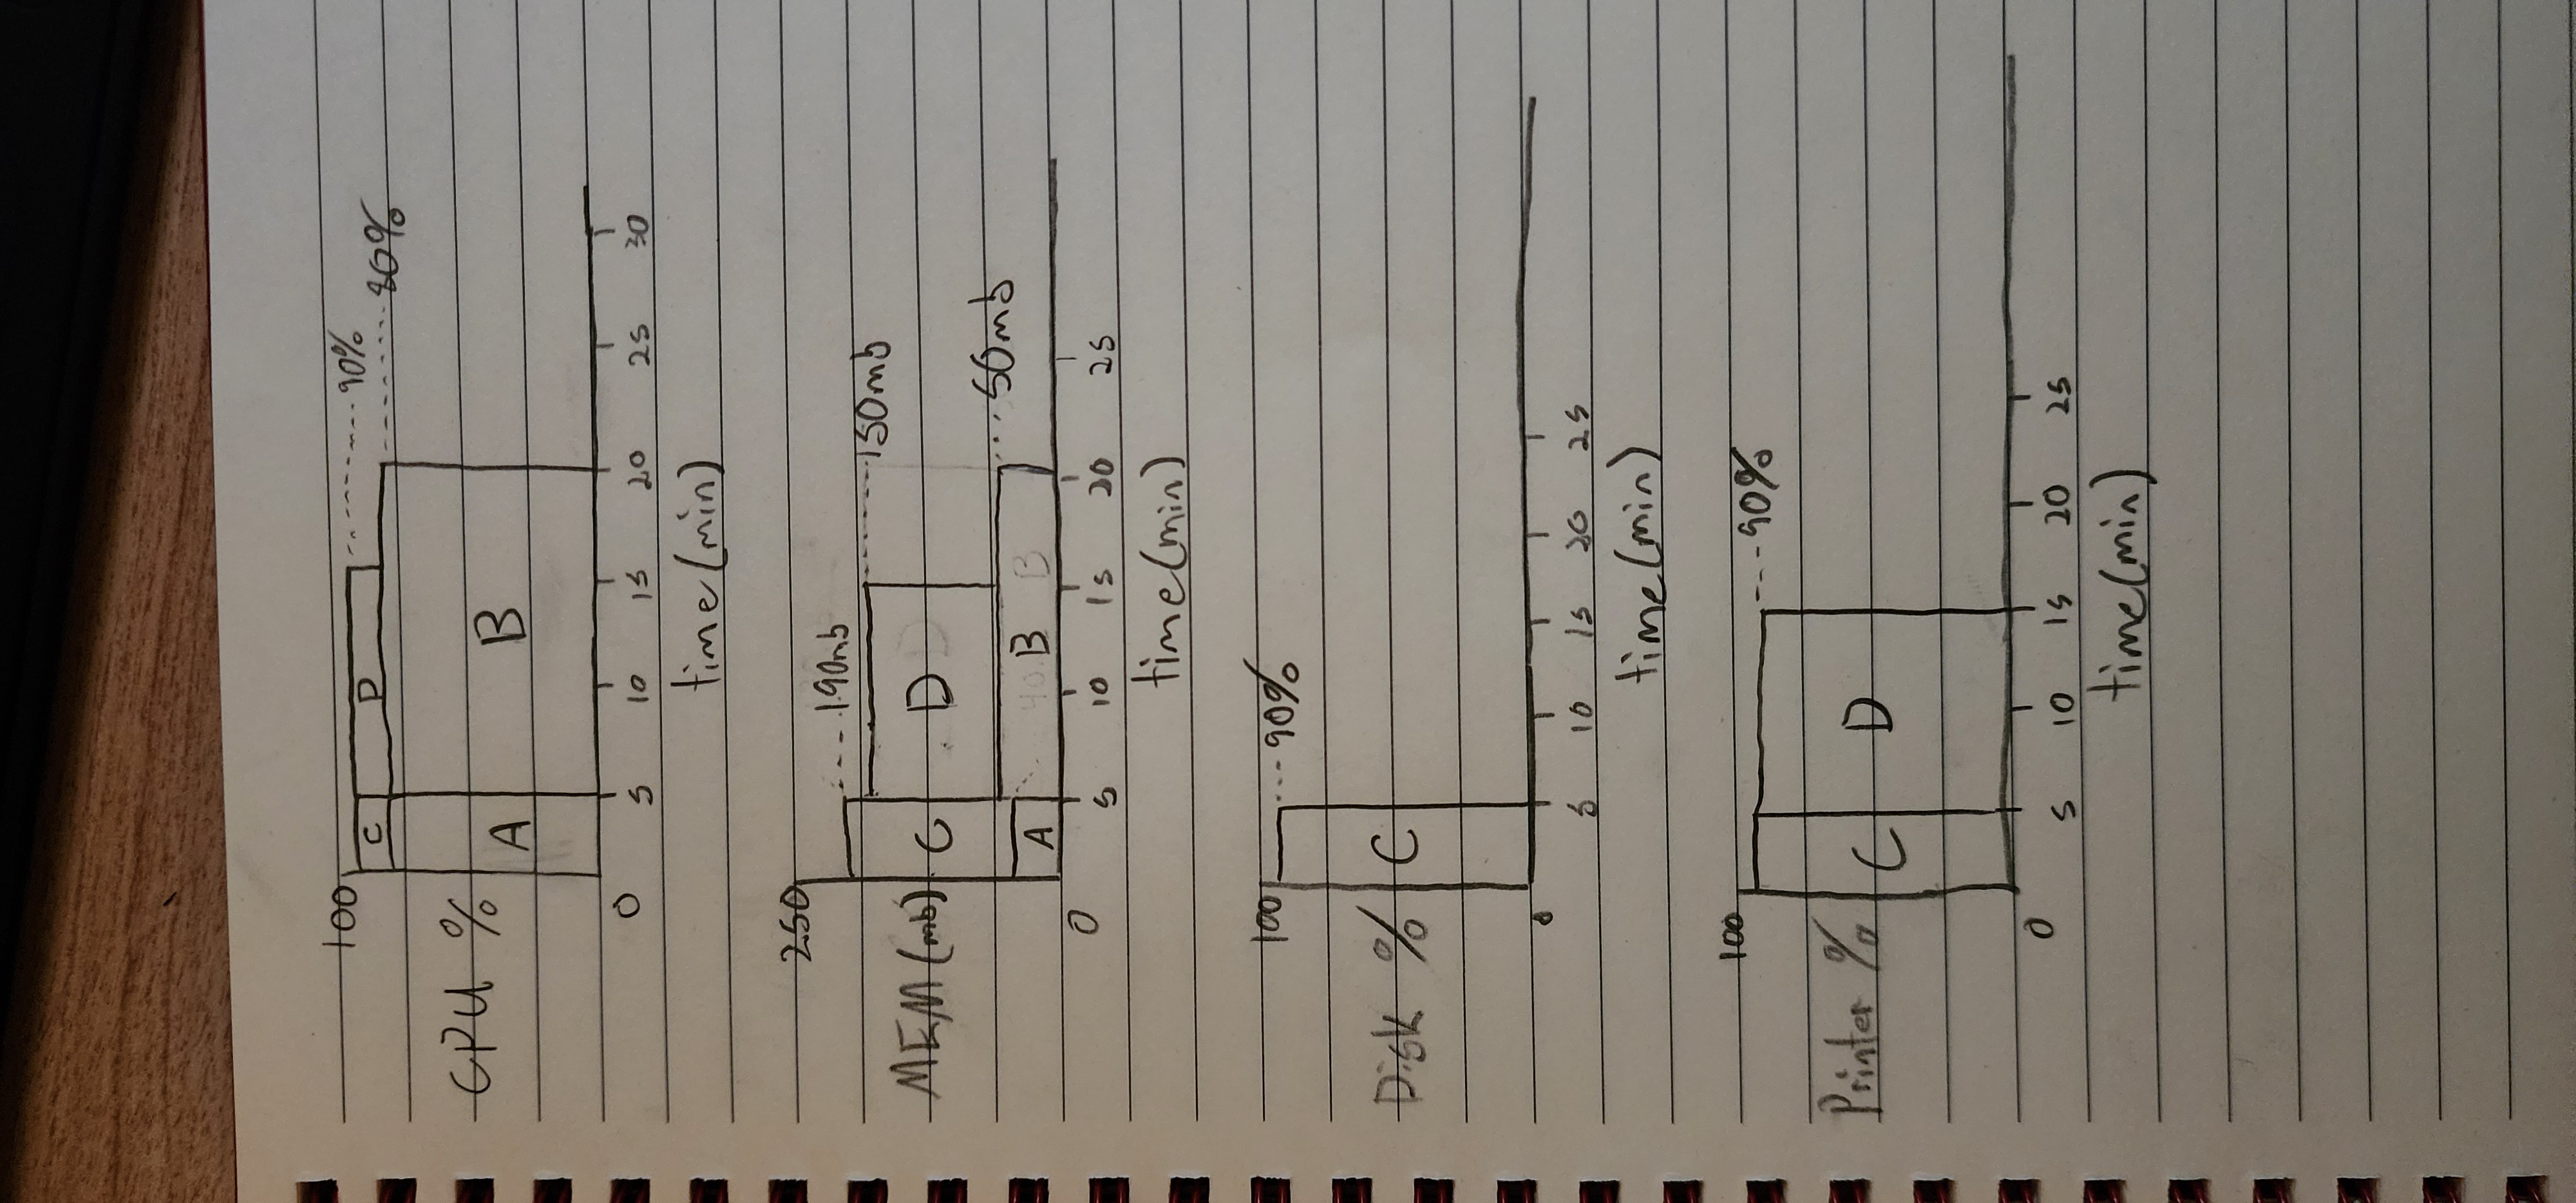 100
C
D
90%
80%
CPU %
A
B
0
5 10 15 20 25 30
time (min)
250
190mb
150mb
MEM (mb)
C
D
50mb
A
B
B
0
5 10 15 20 25
time (min)
100
90%
Disk %
C
0
5 10 15 20 25
time (min)
100
90%
Printer %
C
D
0
5 10 15 20 25
time (min)